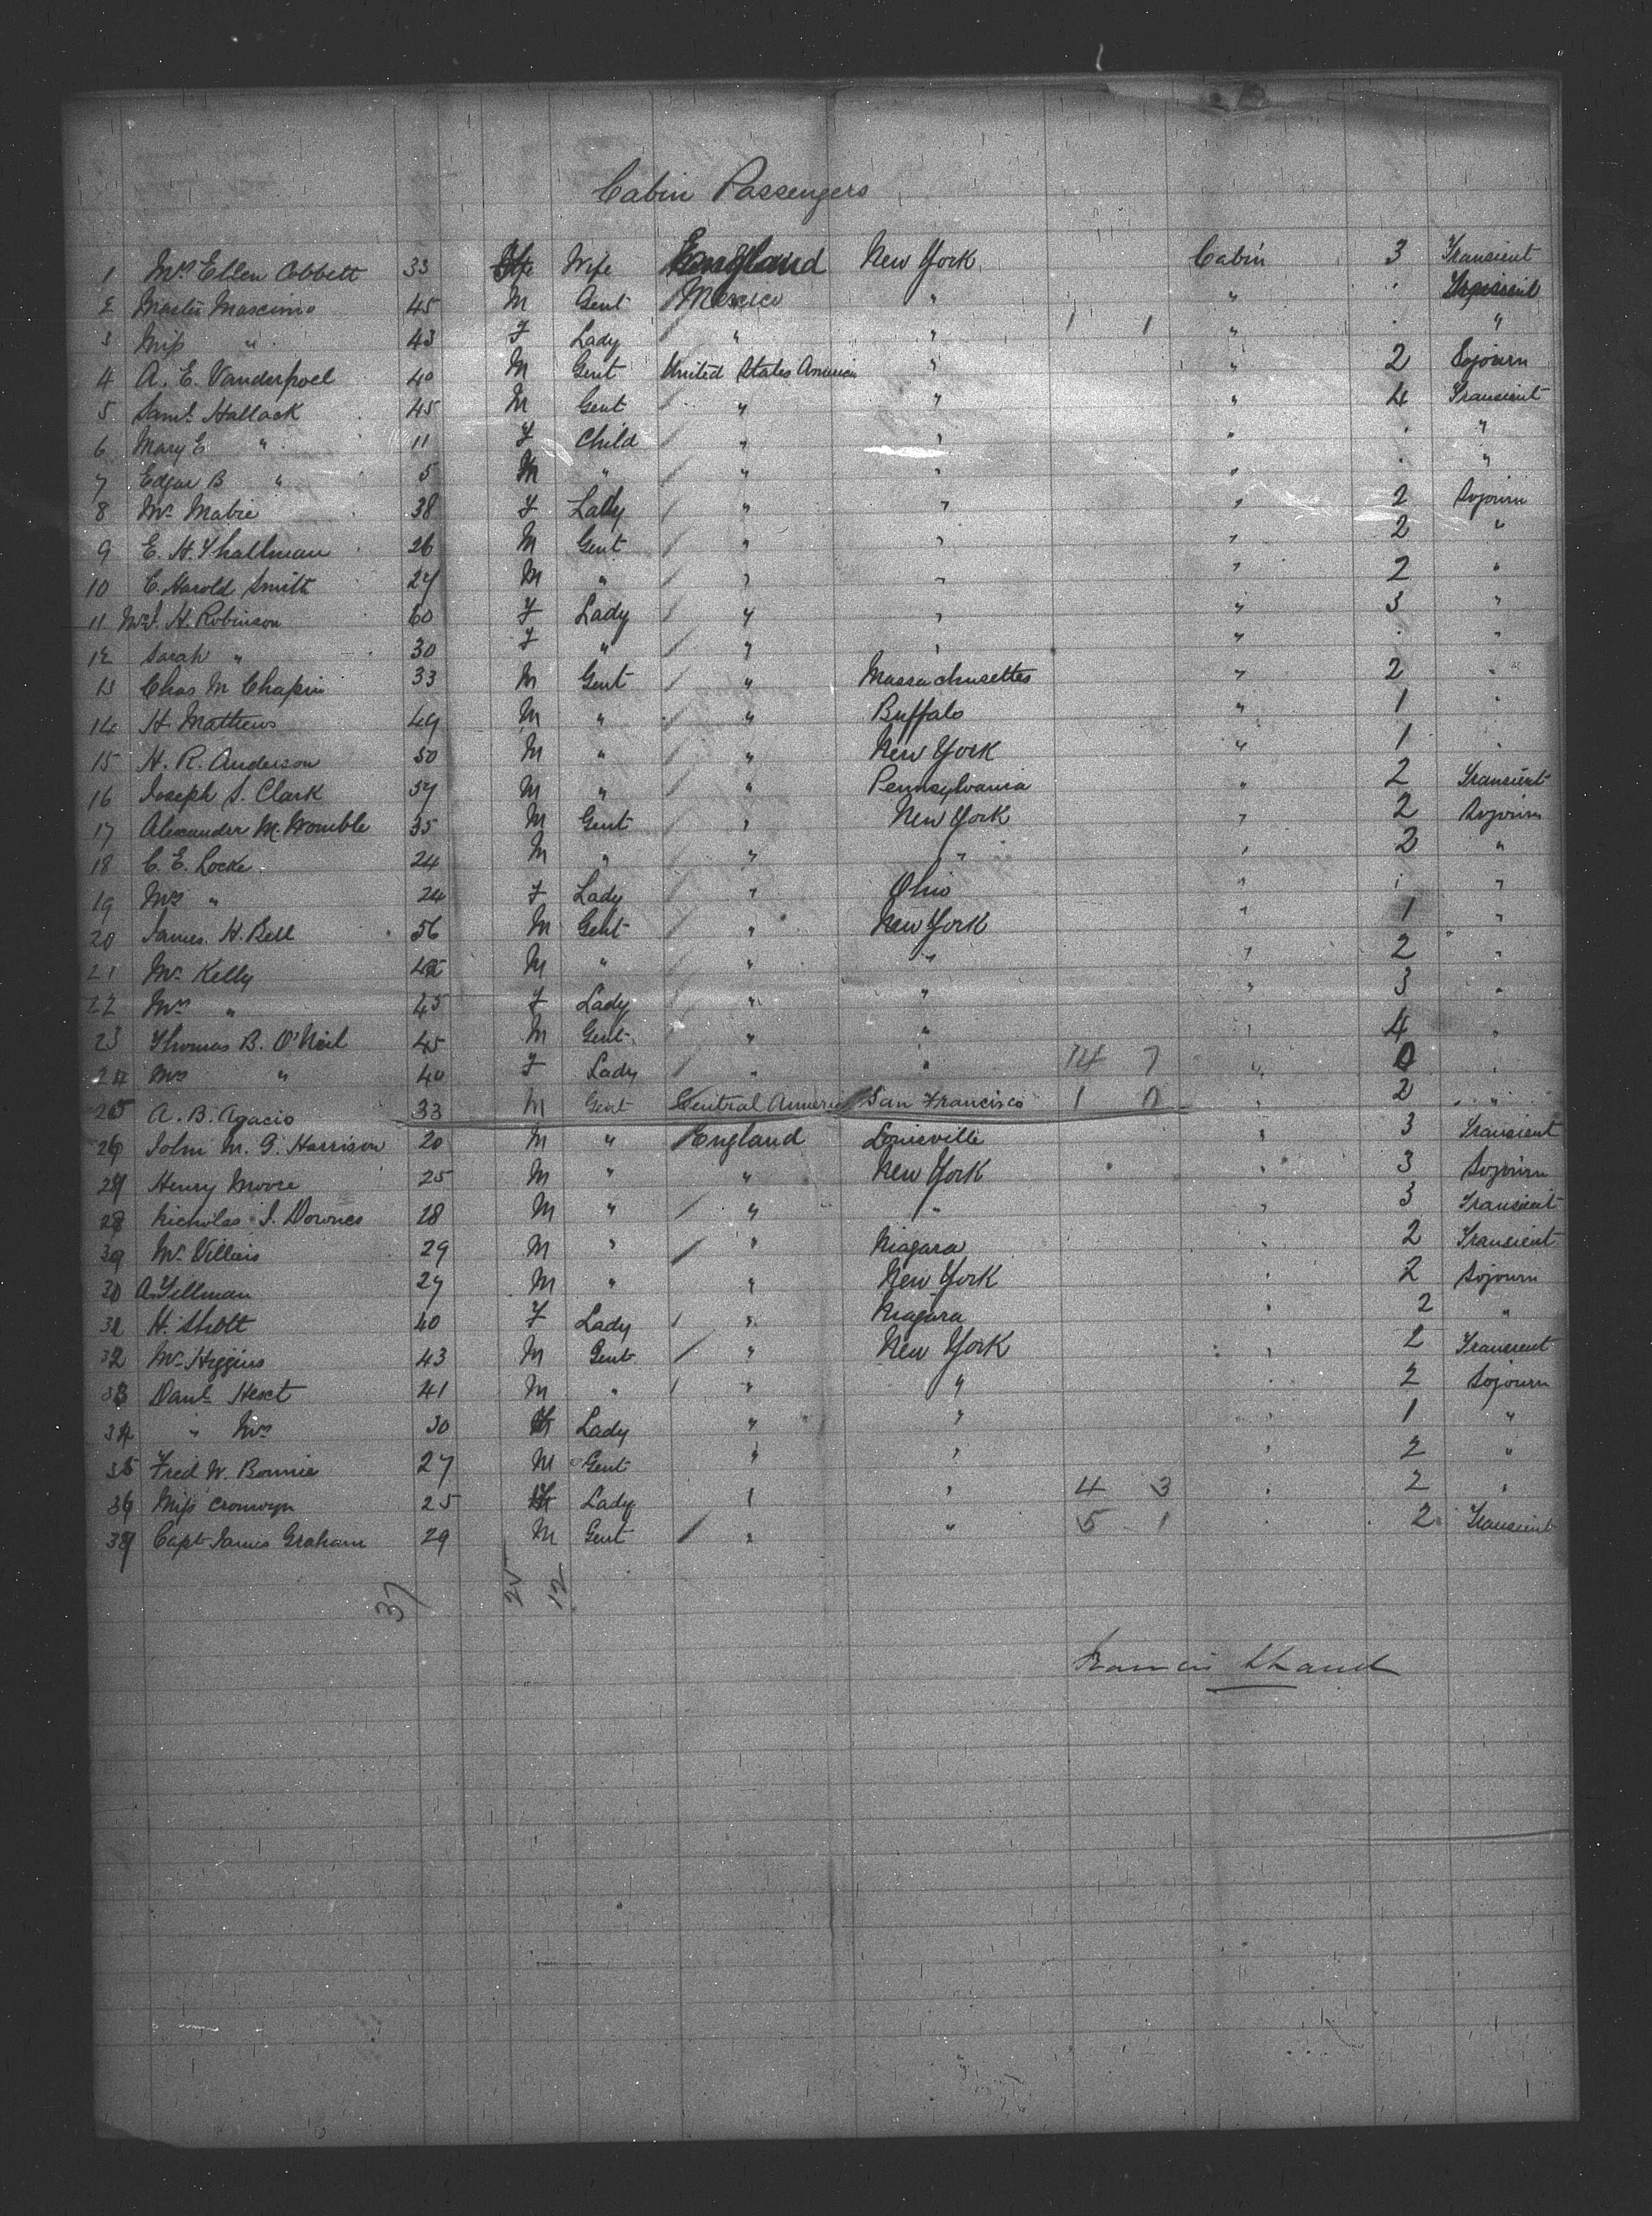 Cabin Passengers
1 Mrs Ellen Cobbett 33 Wife England New York Cabin 3 Transient
2 Mascimo 45 M Gent Mexico " " . Transient
3 Miss " 43 F Lady " " 1 1 " . "
4 A. E. Vanderpoel 40 M Gent United States America " " 2 Sojourn
5 Saml. Hallack 45 M Gent " " " 4 Transient
6 Mary E " 11 F Child " " " . "
7 Edgar B " 5 M " " " " . "
8 Mrs Mabie 38 F Lady " " " 2 Sojourn
9 E. H. Thallman 26 M Gent " " " 2 "
10 C. Harold Smith 27 M " " " " 2 "
11 H. Robinson 60 F Lady " " " 3 "
12 Sarah " 30 F " " " " . "
13 Chas M Chapin 33 M Gent " Massachusettes " 2 "
14 H. Mathews 49 M " " Buffalo " 1 "
15 H. R. Anderson 50 M " " New York " 1 "
16 Joseph S. Clark 57 M " " Pennsylvania " 2 Transient
17 Alexander M. Womble 35 M Gent " New York " 2 Sojourn
18 C. E. Locke 24 M " " " " 2 "
19 Mrs " 24 F Lady " Ohio " "
20 James. H. Bell 56 M Gent " New York " 1 "
21 Mr Kelly M " " " " 2 "
22 Mrs " 45 F Lady " " " 3 "
23 Thomas B. O'Neil 45 M Gent " " " 4 "
24 Mrs " 40 F Lady " " 14 7 " "
25 A. B. Agacio 33 M Gent Central America San Francisco 1 0 " 2 "
26 John M. G. Harrison 20 M " England Louisville " 3 Transient
27 Henry Moore 25 M " " New York " 3 Sojourn
28 Nicholas J. Downes 18 M " " " " 3 Transient
39 Mr Villiers 29 M " " Niagara " 2 Transient
30 A. Tillman 27 M " " New York " 2 Sojourn
31 H. Shott 40 F Lady " Niagara " 2 "
32 Mr Higgins 43 M Gent " New York " 2 Transient
33 Danl. Hext 41 M " " " " 2 Sojourn
34 " Mrs 30 F Lady " " " 1 "
35 Fred W. Bonnie 27 M Gent " " " 2 "
36 Miss Cronwyn 25 F Lady " " 4 3 " 2 "
37 Capt James Graham 29 M Gent " " 5 1 " 2 Transient
37 25 12
Francis